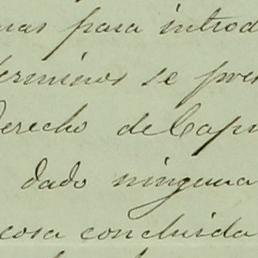 nas para introd
terminos se pres
derecho de Capn
dado ninguna
cosa concluida